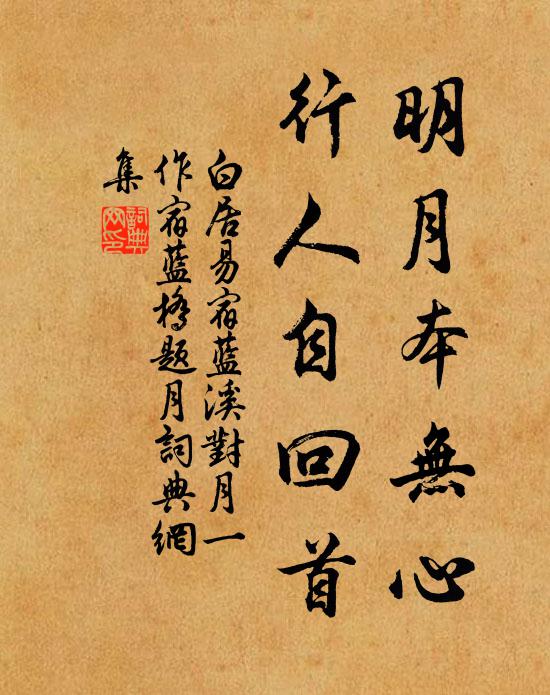 明月本無心
行人自回首
白居易宿藍溪對月一
作宿藍橋題月詞典網
集
詞典
网印